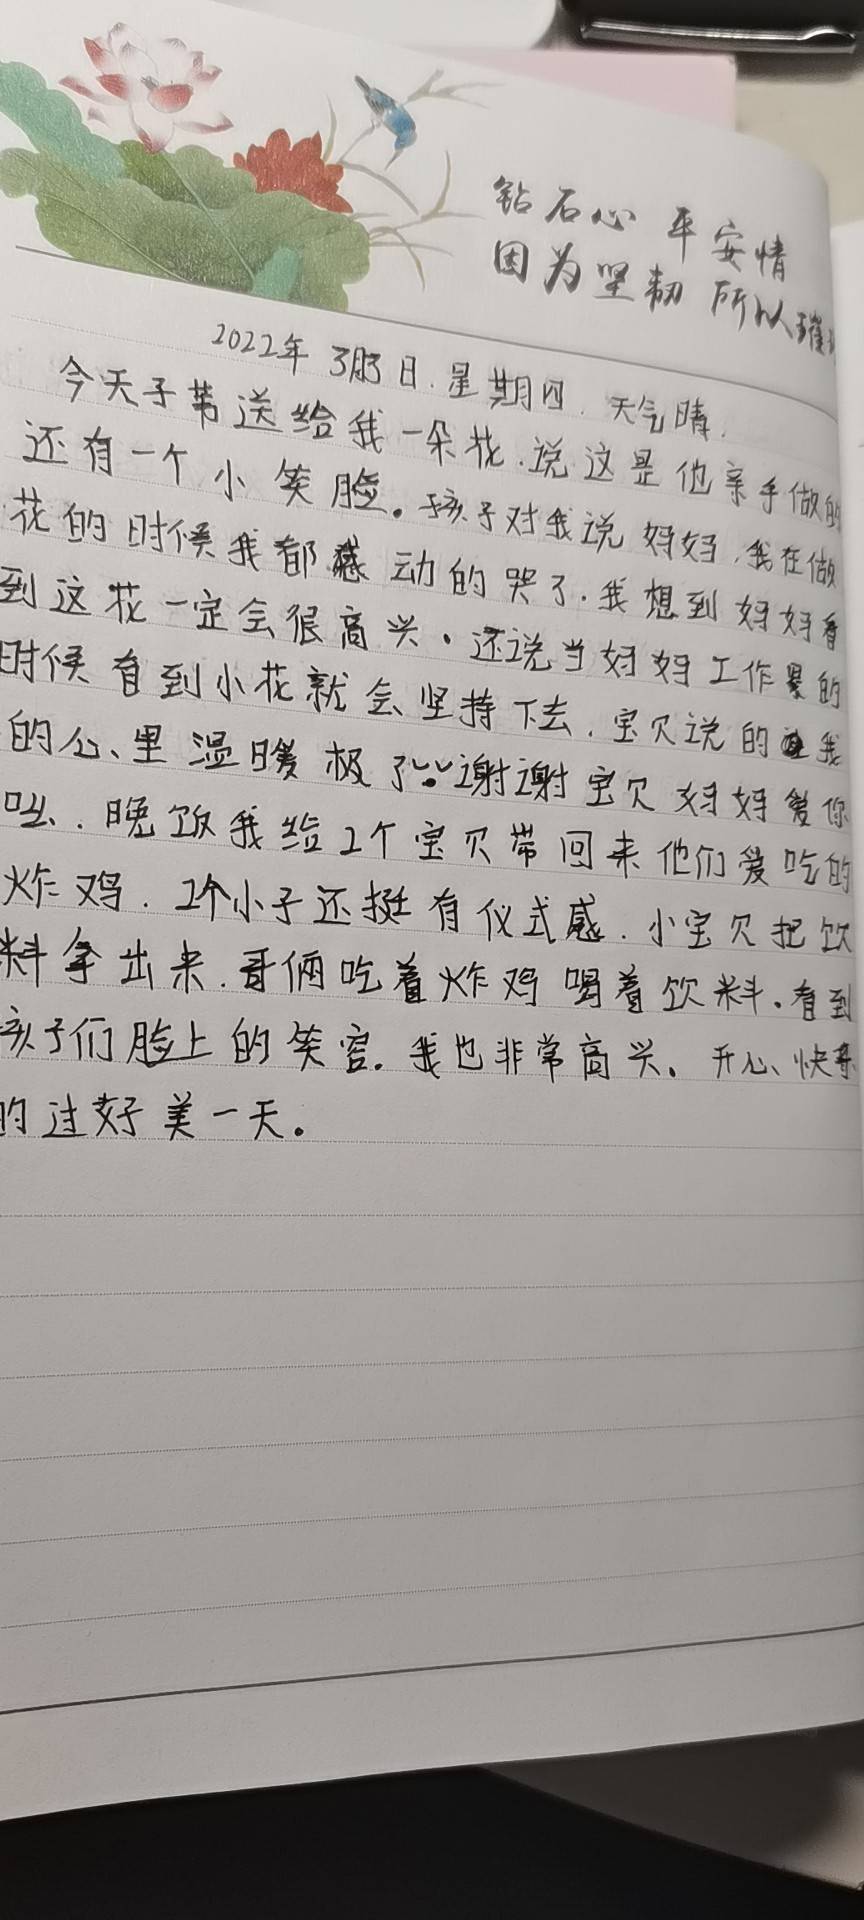 钻石心 平安情
因为坚韧 所以璀
2022年 3月3日.星期四. 天气晴.
今天子苇送给我一朵花.说这是他亲手做的
还有一个小笑脸。孩子对我说妈妈,我在做
花的时候我都感动的哭了.我想到妈妈看
到这花一定会很高兴。还说当妈妈工作累的
时候看到小花就会坚持下去.宝贝说的我
的心里温暖极了。谢谢宝贝妈妈爱你
呦.晚饭我给2个宝贝带回来他们爱吃的
炸鸡.2个小子还挺有仪式感.小宝贝把饮
料拿出来.哥俩吃着炸鸡喝着饮料。看到
孩子们脸上的笑容.我也非常高兴。开心、快乐
的过好美一天。